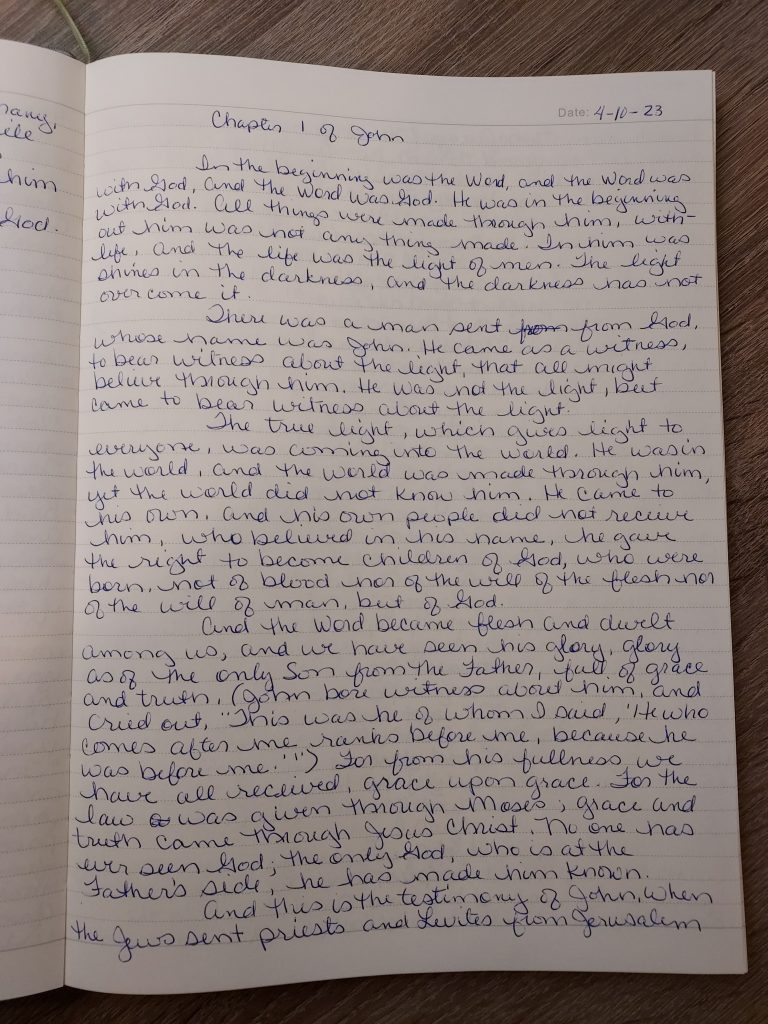 many,
him
God.
Date: 4-10-23
Chapter 1 of John
In the beginning was the Word, and the Word was
with God, and the Word was God. He was in the beginning
with God. All things were made through him, with-
out him was not any thing made. In him was
life, and the life was the light of men. The light
shines in the darkness, and the darkness has not
overcome it.
There was a man sent from God,
whose name was John. He came as a witness,
to bear witness about the light, that all might
believe through him. He was not the light, but
came to bear witness about the light.
The true light, which gives light to
everyone, was coming into the world. He was in
the world, and the world was made through him,
yet the world did not know him. He came to
his own, and his own people did not receive
him, who believed in his name, he gave
the right to become children of God, who were
born, not of blood nor of the will of the flesh nor
of the will of man, but of God.
And the Word became flesh and dwelt
among us, and we have seen his glory, glory
as of the only Son from the Father, full of grace
and truth. (John bore witness about him, and
cried out, "This was he of whom I said, 'He who
comes after me ranks before me, because he
was before me.'") For from his fullness we
have all received, grace upon grace. For the
law was given through Moses; grace and
truth came through Jesus Christ. No one has
ever seen God; the only God, who is at the
Father's side, he has made him known.
And this is the testimony of John, when
the Jews sent priests and Levites from Jerusalem